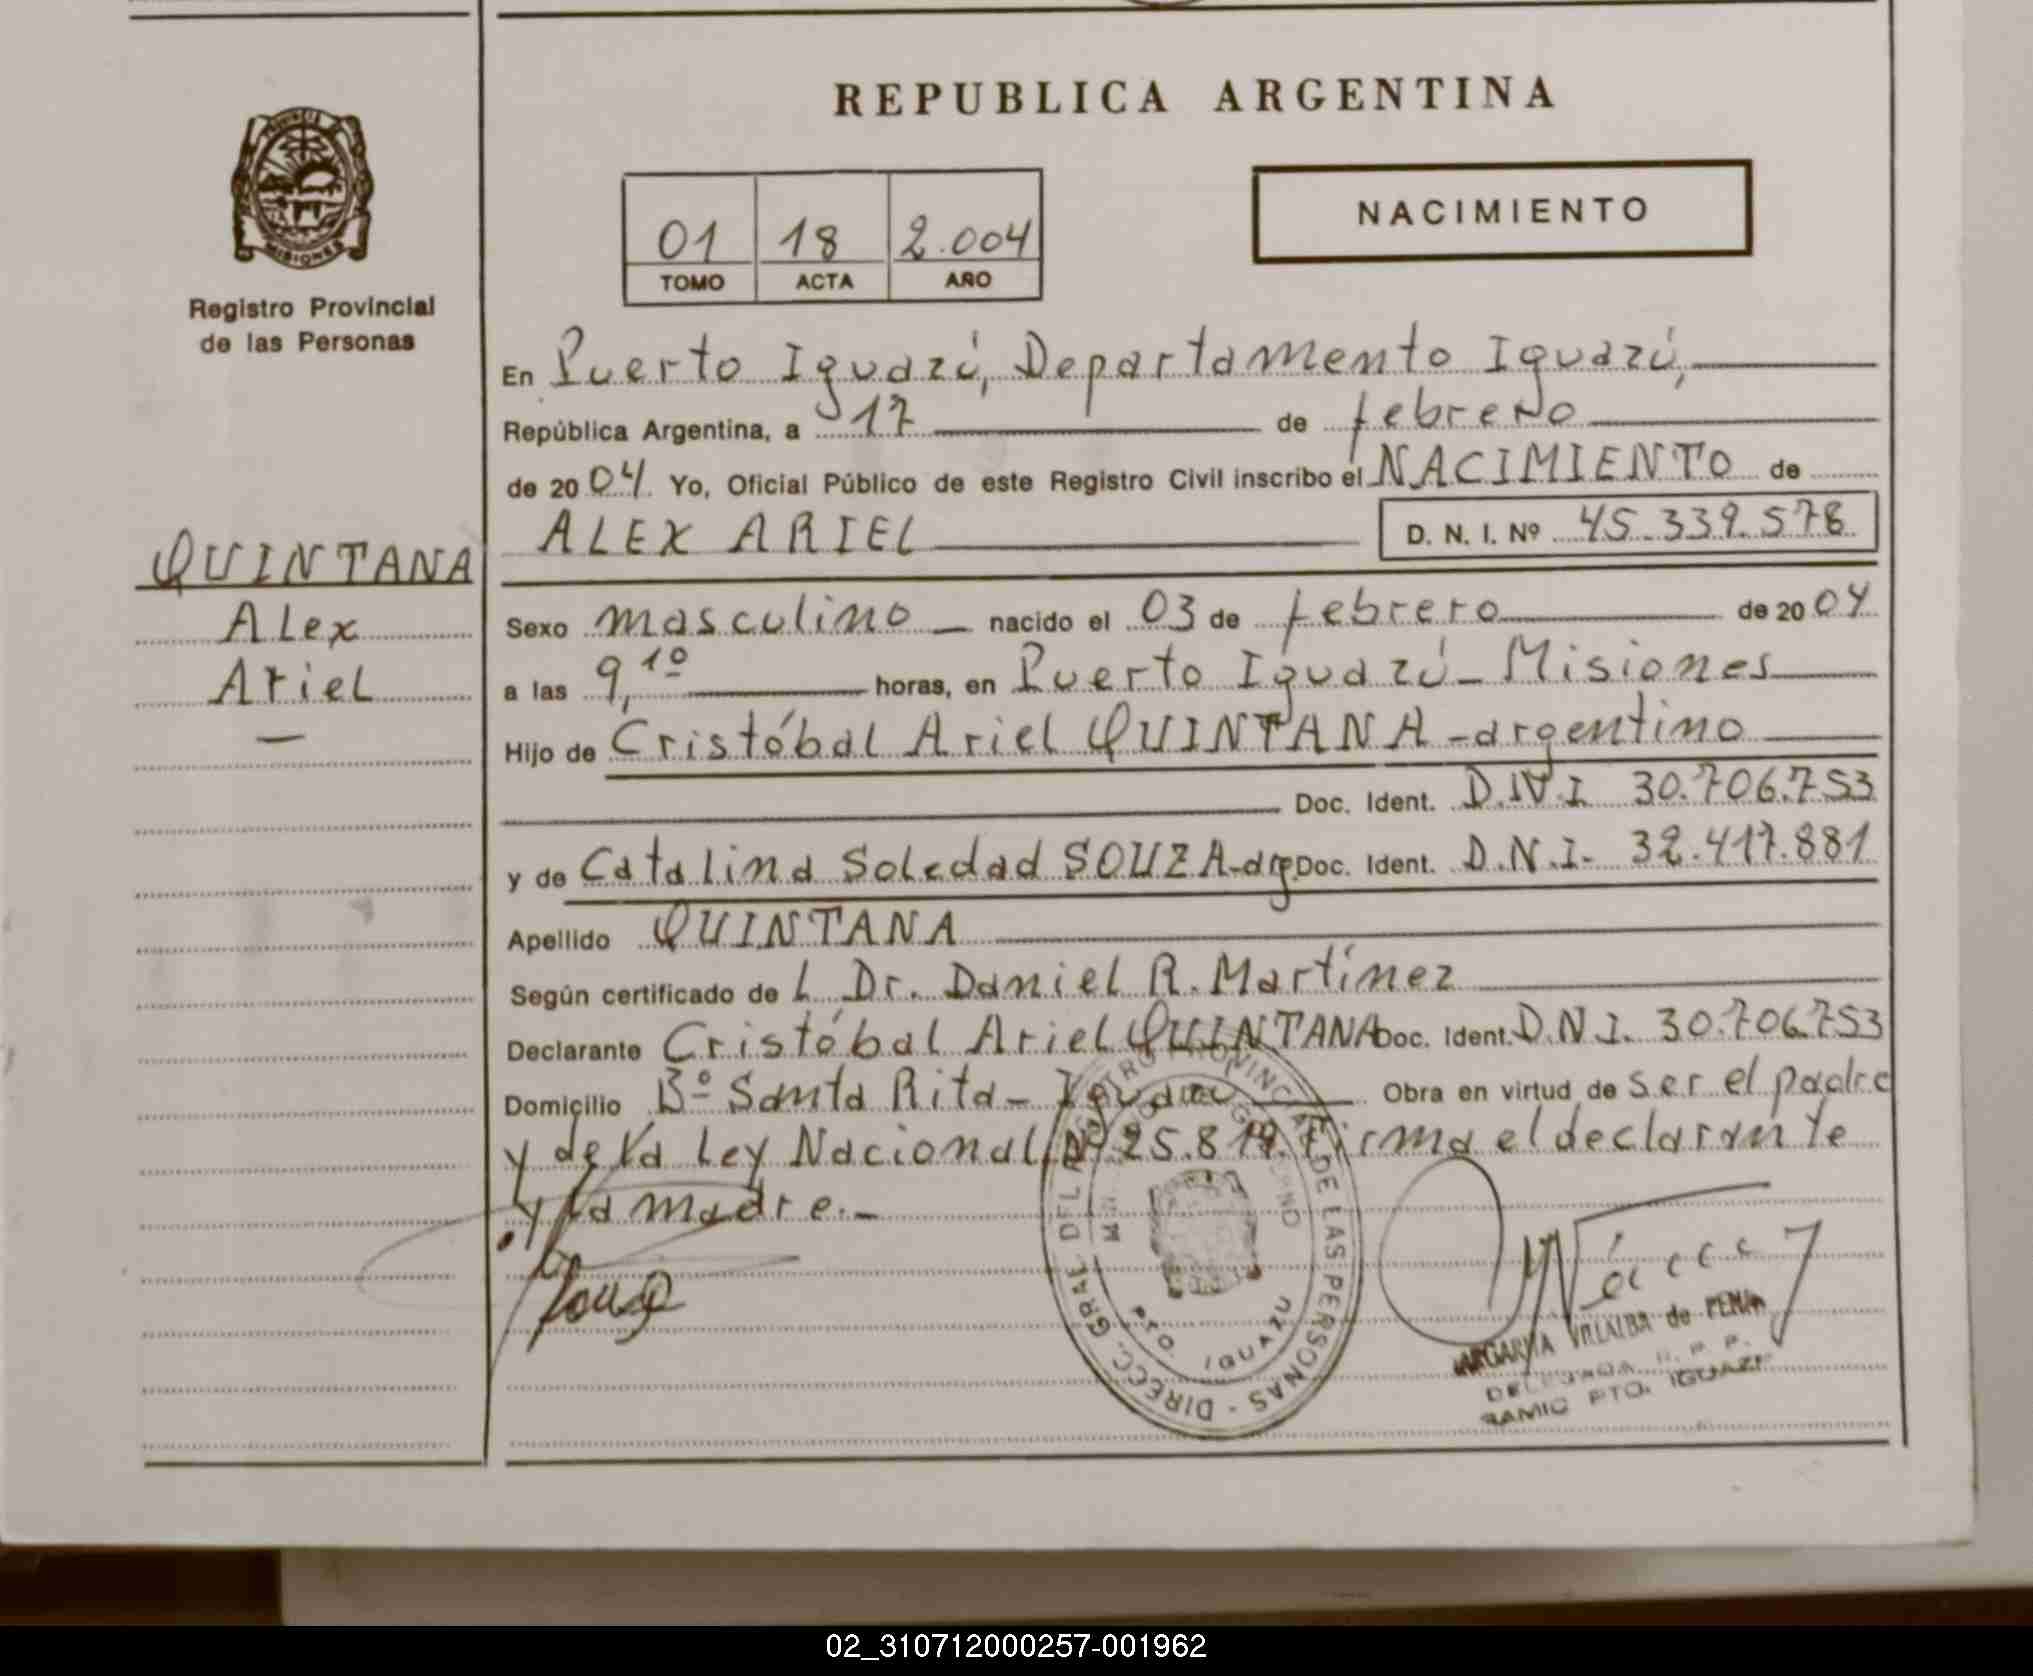 REPUBLICA ARGENTINA
PROVINCIA DE
MISIONES
Registro Provincial
de las Personas
01 18 2.004
TOMO ACTA AÑO
NACIMIENTO
En Puerto Iguazú, Departamento Iguazú,
República Argentina, a 17 de febrero
de 2004. Yo, Oficial Público de este Registro Civil inscribo el NACIMIENTO de
ALEX ARIEL D. N. I. Nº 45.339.578
QUINTANA
Alex
Ariel
Sexo masculino nacido el 03 de febrero de 2004
a las 9,10 horas, en Puerto Iguazú - Misiones
Hijo de Cristóbal Ariel QUINTANA - argentino
Doc. Ident. D.N.I. 30.706.753
y de Catalina Soledad SOUZA - arg Doc. Ident. D.N.I. 32.417.881
Apellido QUINTANA
Según certificado de L Dr. Daniel R. Martínez
Declarante Cristóbal Ariel QUINTANA Doc. Ident. D.N.I. 30.706.753
Domicilio Bº Santa Rita - Iguazú Obra en virtud de ser el padre
y de la Ley Nacional Nº 25.819. Firma el declarante
y la madre.-
Souza
DIRECC. GRAL. DEL REGISTRO PROVINCIAL DE LAS PERSONAS
PTO. IGUAZU
MARGARITA VILLALBA de PENA
DELEGADA R. P. P.
RAMIC PTO. IGUAZU
02_310712000257-001962